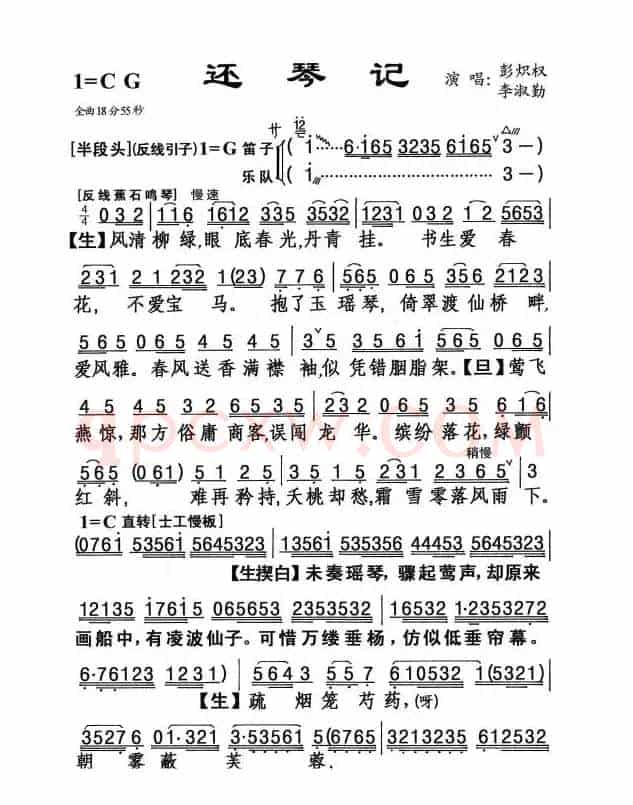 1=C G 还琴记 演唱: 彭炽权
李淑勤
全曲18分55秒
廿 12
[半段头](反线引子)1=G 笛子 ( i······6·i65 3235 6i65 3 — )
乐队 ( i······ 3 — )
[反线蕉石鸣琴] 慢速
4/4 032 | 116 1612 335 3532 | 1231 032 12 5653
【生】风清柳绿,眼底春光,丹青挂。书生爱春
231 2123231 1(23) 776 | 565 065 356 2123
花, 不爱宝马。抱了玉瑶琴,倚翠渡仙桥畔,
565 065 45 45 | 35 065 356i 6543
爱风雅。春风送香满襟袖,似凭错胭脂架。【旦】莺飞
45 45 323 6535 | 232 065 356 216
燕惊,那方俗庸商客,误闻龙华。缤纷落花,绿颤
稍慢
565 (061) 5122 | 3515 0235 2365 | 3
红斜, 难再矜持,夭桃却愁,霜雪零落风雨下。
1=C 直转[士工慢板]
(076i 53561 5645323 | 13561 535356 44453 5645323
【生揳白】未奏瑶琴,骤起莺声,却原来
12135 i76i5 065653 2353532 | 16532 1·2353272
画船中,有凌波仙子。可惜万缕垂杨,仿似低垂帘幕。
6·76123 1231) | 5643 557 610532 1(5321)
【生】疏烟笼芍药,(呀)
35276 01·321 3·53561 5(6532) | 1·235 612532
朝雾蔽芙蓉.